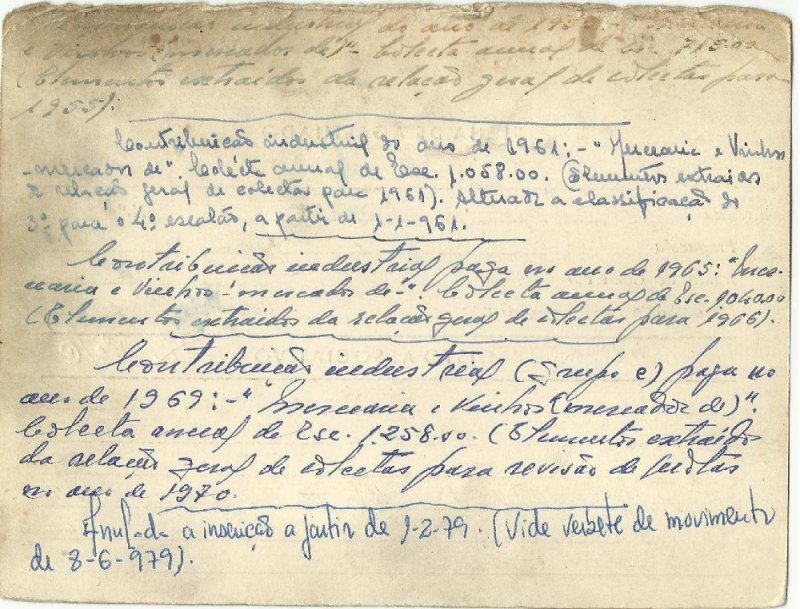 industrial do ano de
e Vinhos (mercados de)" - Colecta anual de Esc. 715.00
(Elementos extraídos da relação geral de colectas para
1955).
Contribuição industrial do ano de 1961:- "Mercearia e Vinhos
-mercador de". Colécta anual de Esc. 1.058.00. (Elementos extraidos
relação geral de colectas para 1961). Alterada a classificação do
3º para o 4º escalão, a partir de 1-1-961.
Contribuição industrial paga no ano de 1965: "Merce-
naria e Vinhos - mercados de" Colecta anual de Esc.
(Elementos extraidos da relação geral de colectas para 1966).
Contribuição industrial (Grupo C) paga no
ano de 1969:- "Mercearia e Vinhos (mercador de)".
Colecta anual de Esc. 1.258.00. (Elementos extraidos
da relação geral de colectas para revisão de quotas
no ano de 1970.
a inscrição a partir de 1-2-79. (Vide verbete de movimento
de 8-6-979).